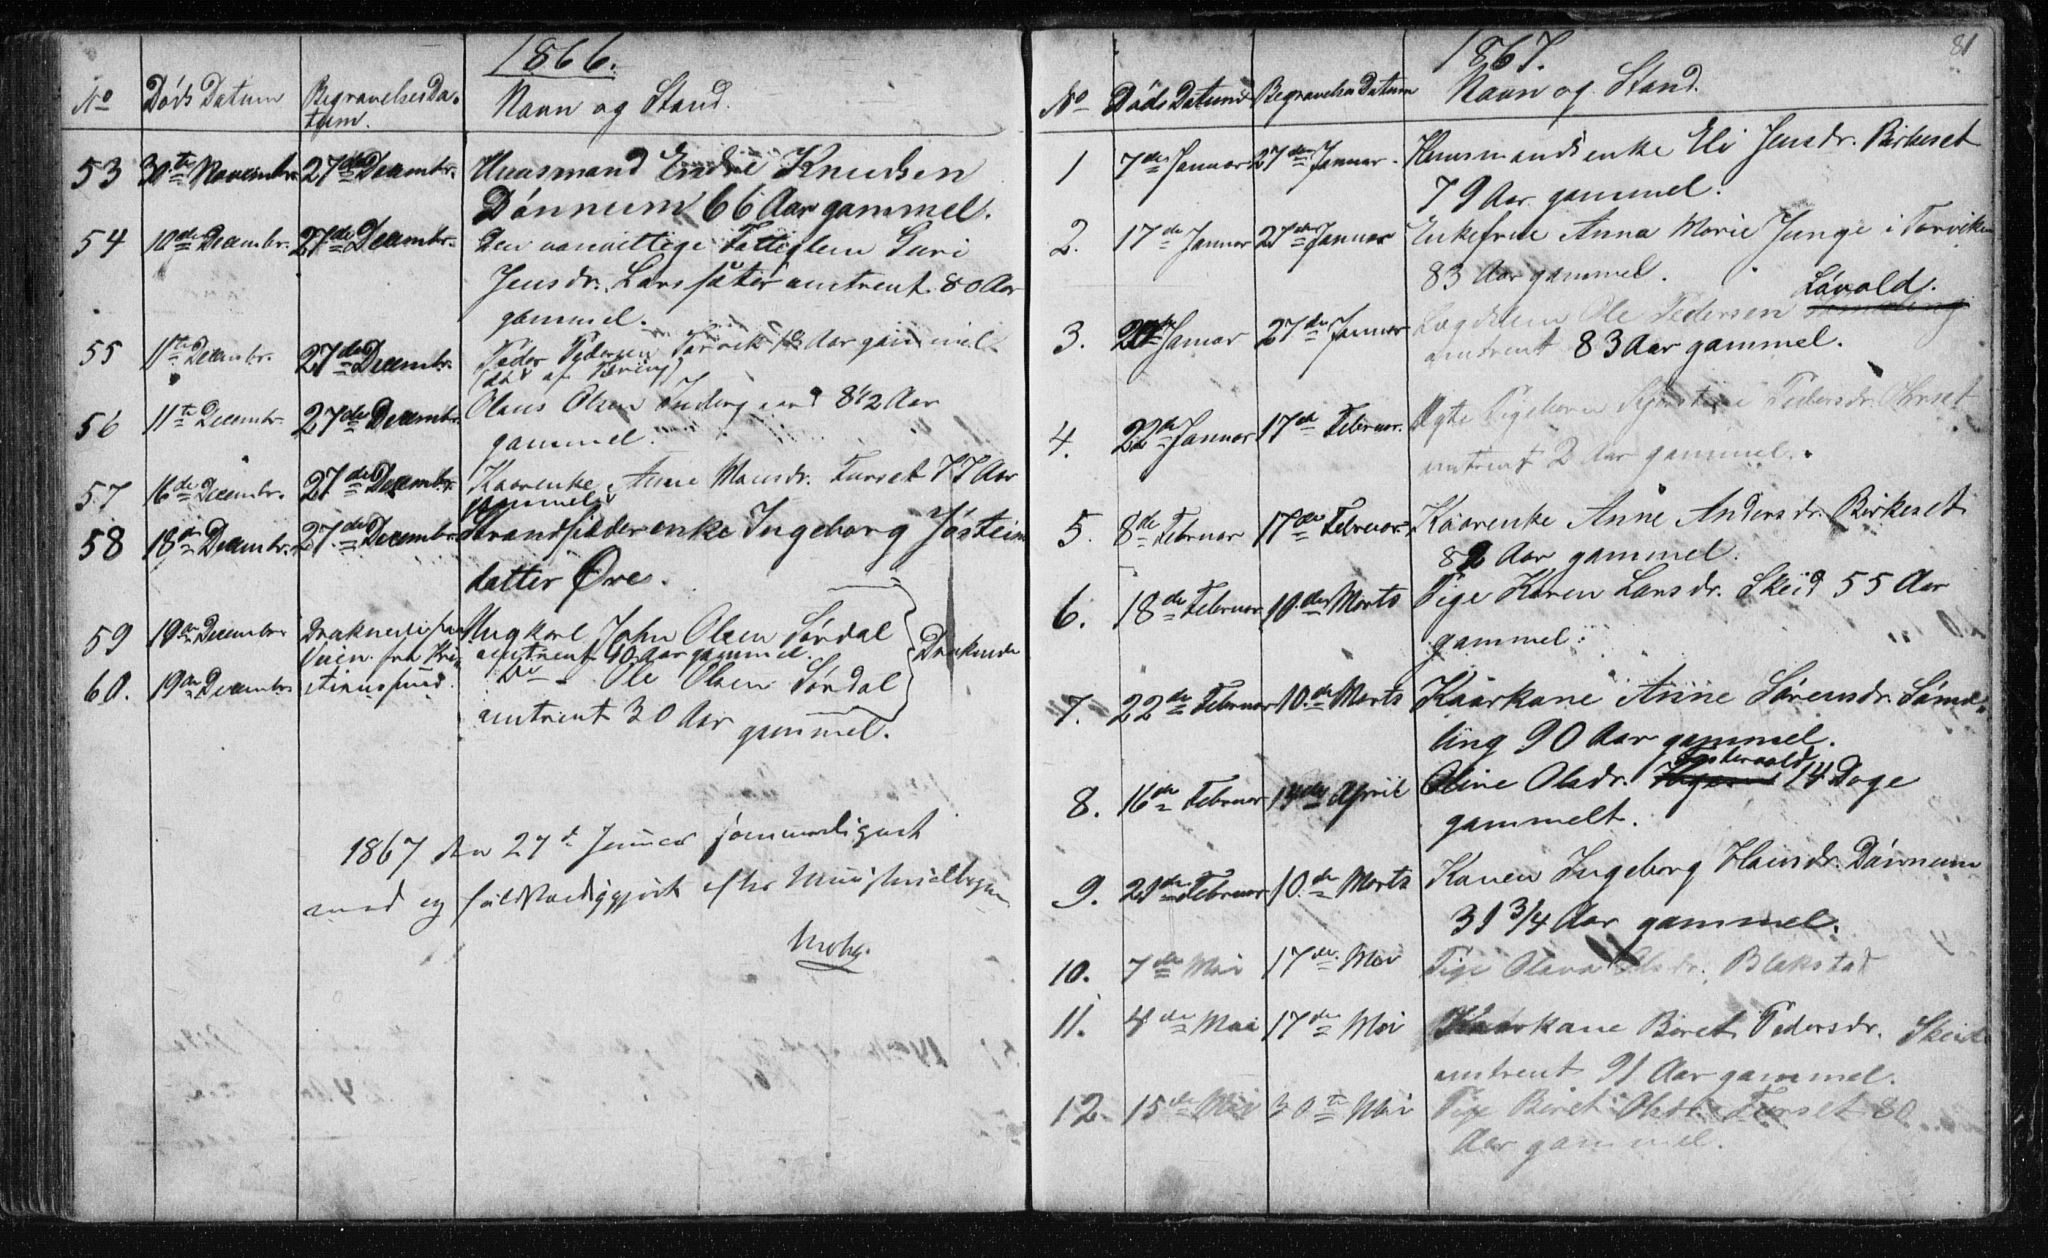 1866.
No Døds Datum BegravelsesDa-
tum. Navn og Stand.
53 30te Novembr. 27de Decembr. Huusmand Endre Knudsen
Dønnum 66 Aar gammel.
54 10de Decembr. 27de Decembr. Den vanvittige Fattiglem Guri
Jensdr. Larssæter omtrent 80 Aar
gammel.
55 11te Decembr. 27de Decembr. Peder Pedersen Torvik 18 Aar gammel
(død af Tæring)
56 11te Decembr. 27de Decembr. Olaus Olsen 8 1/2 Aar
gammel.
57 16de Decembr. 27de Decembr. Kaarenke Anne Monsdr. Furset 77 Aar
gammel
58 18de Decembr. 27de Decembr. Strandsidderenke Ingeborg Jostein
datter Øre.
59 19de Decembr. Druknede paa Ungkarl John Olsen Sørdal
Veien fra Kri- omtrent 40 Aar gammel. Druknede
60. 19de Decembr. stianssund. Do - Ole Olsen Sørdal
omtrent 30 Aar
gammel.
1867 den 27d Januar sammenlignet
med og fuldstændiggjort efter Ministerialbogen
81
1867.
No Døds Datum Begravelses Datum Navn og Stand.
1 7de Januar 27de Januar. Huusmandsenke Eli Jensdr. Birkeset
79 Aar gammel.
2. 17de Januar 27de Januar Enkefrue Anna Marie Junge i Torviken
83 Aar gammel.
Løvold.
3. Januar 27de Januar Lægdslem Ole Pedersen
omtrent 83 Aar gammel.
4. 22de Januar 17de Februar. Ægte Pigebarn Pedersdr.
omtrent 2 Aar gammel.
5. 8de Februar 17de Februar. Kaarenke Anne Andersdr. Birkeset
82 Aar gammel.
6. 18de Februar 10de Marts Pige Karen Larsdr. Skeid 55 Aar
gammel.
7. 22de Februar 10.de Marts Kaarkone Anne Sørensdr. Sømd-
ling 90 Aar gammel.
8. 16de Februar 14de April Oline Olsdr. 14 Dage
gammelt.
9. 21de Februar 10.de Marts Karen Ingeborg Hansdr. Dønnum
31 3/4 Aar gammel.
10. 7de Mai 17de Mai Pige Olava Olsdr. Blakstad
11. 4de Mai 17de Mai Kaarkone Beret Pedersdr. Skeide
omtrent 91 Aar gammel.
12. 15de Mai 30te Mai Pige Beret Olsdr. Furset 80
Aar gammel.